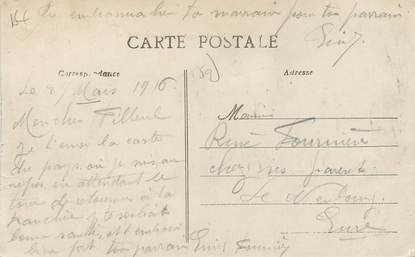 154
ta marraine pour ton parrain
CARTE POSTALE
Correspondance
Adresse
Le 2 Mars 1916
Mon cher Filleul
Je t'envoi la carte
du pays où je suis au
repos en attendant le
tour de retourner à la
tranchée je te souhaite
bonne santé, et
bien fort ton parrain
Monsieur
René Fournier
chez ses parents
Le Neubourg
Eure